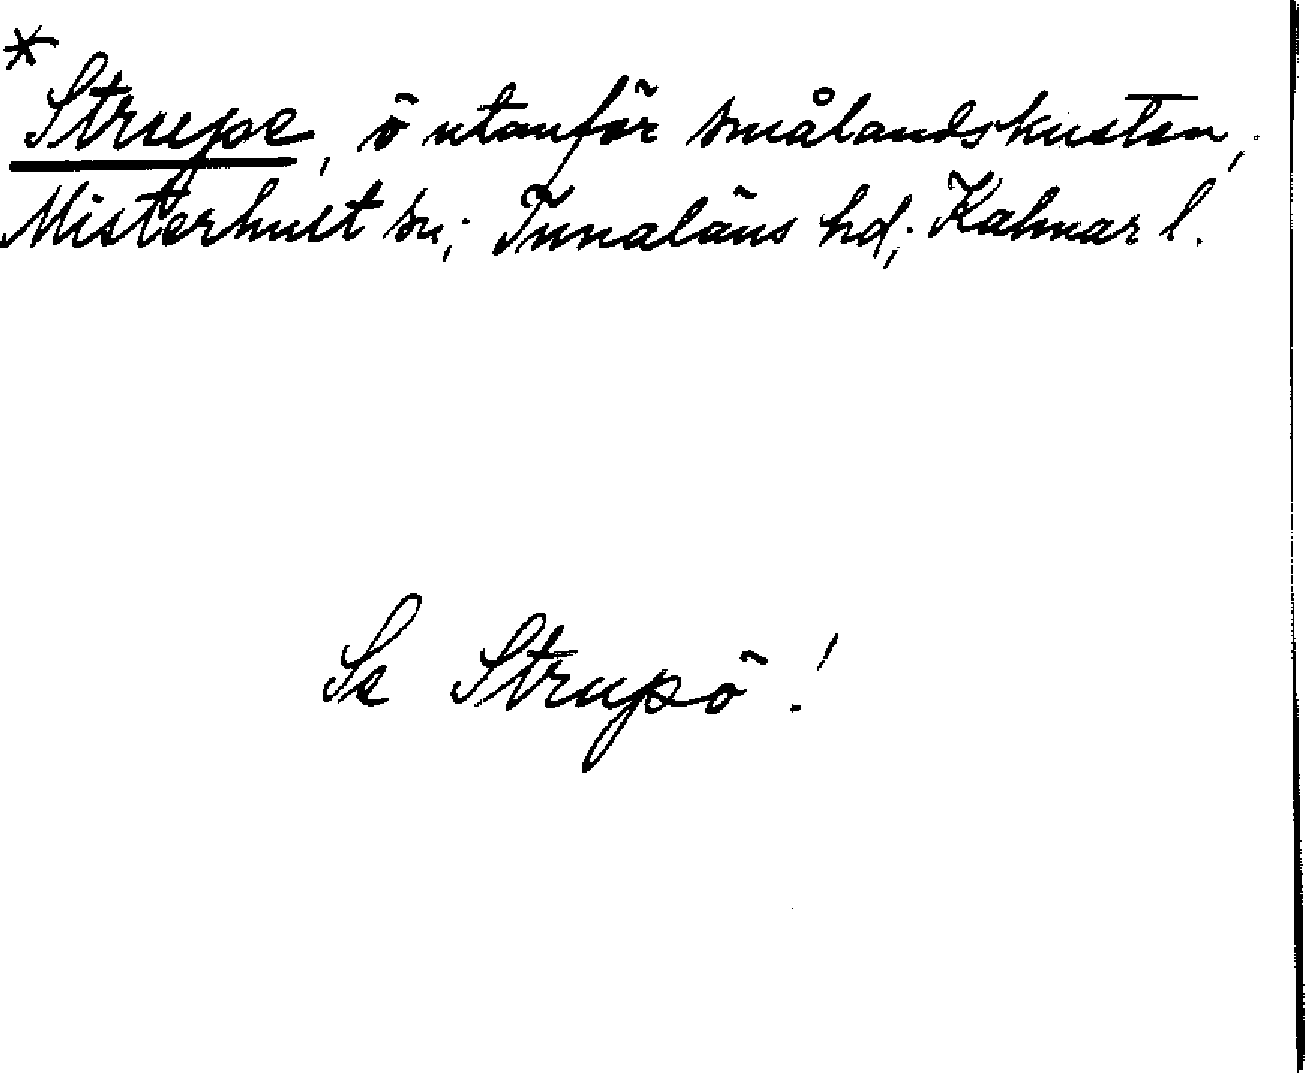 *
Strupe, ö utanför smålandskusten,
Misterhult sn; Tunaläns hd; Kalmar l.
Se Strupö!